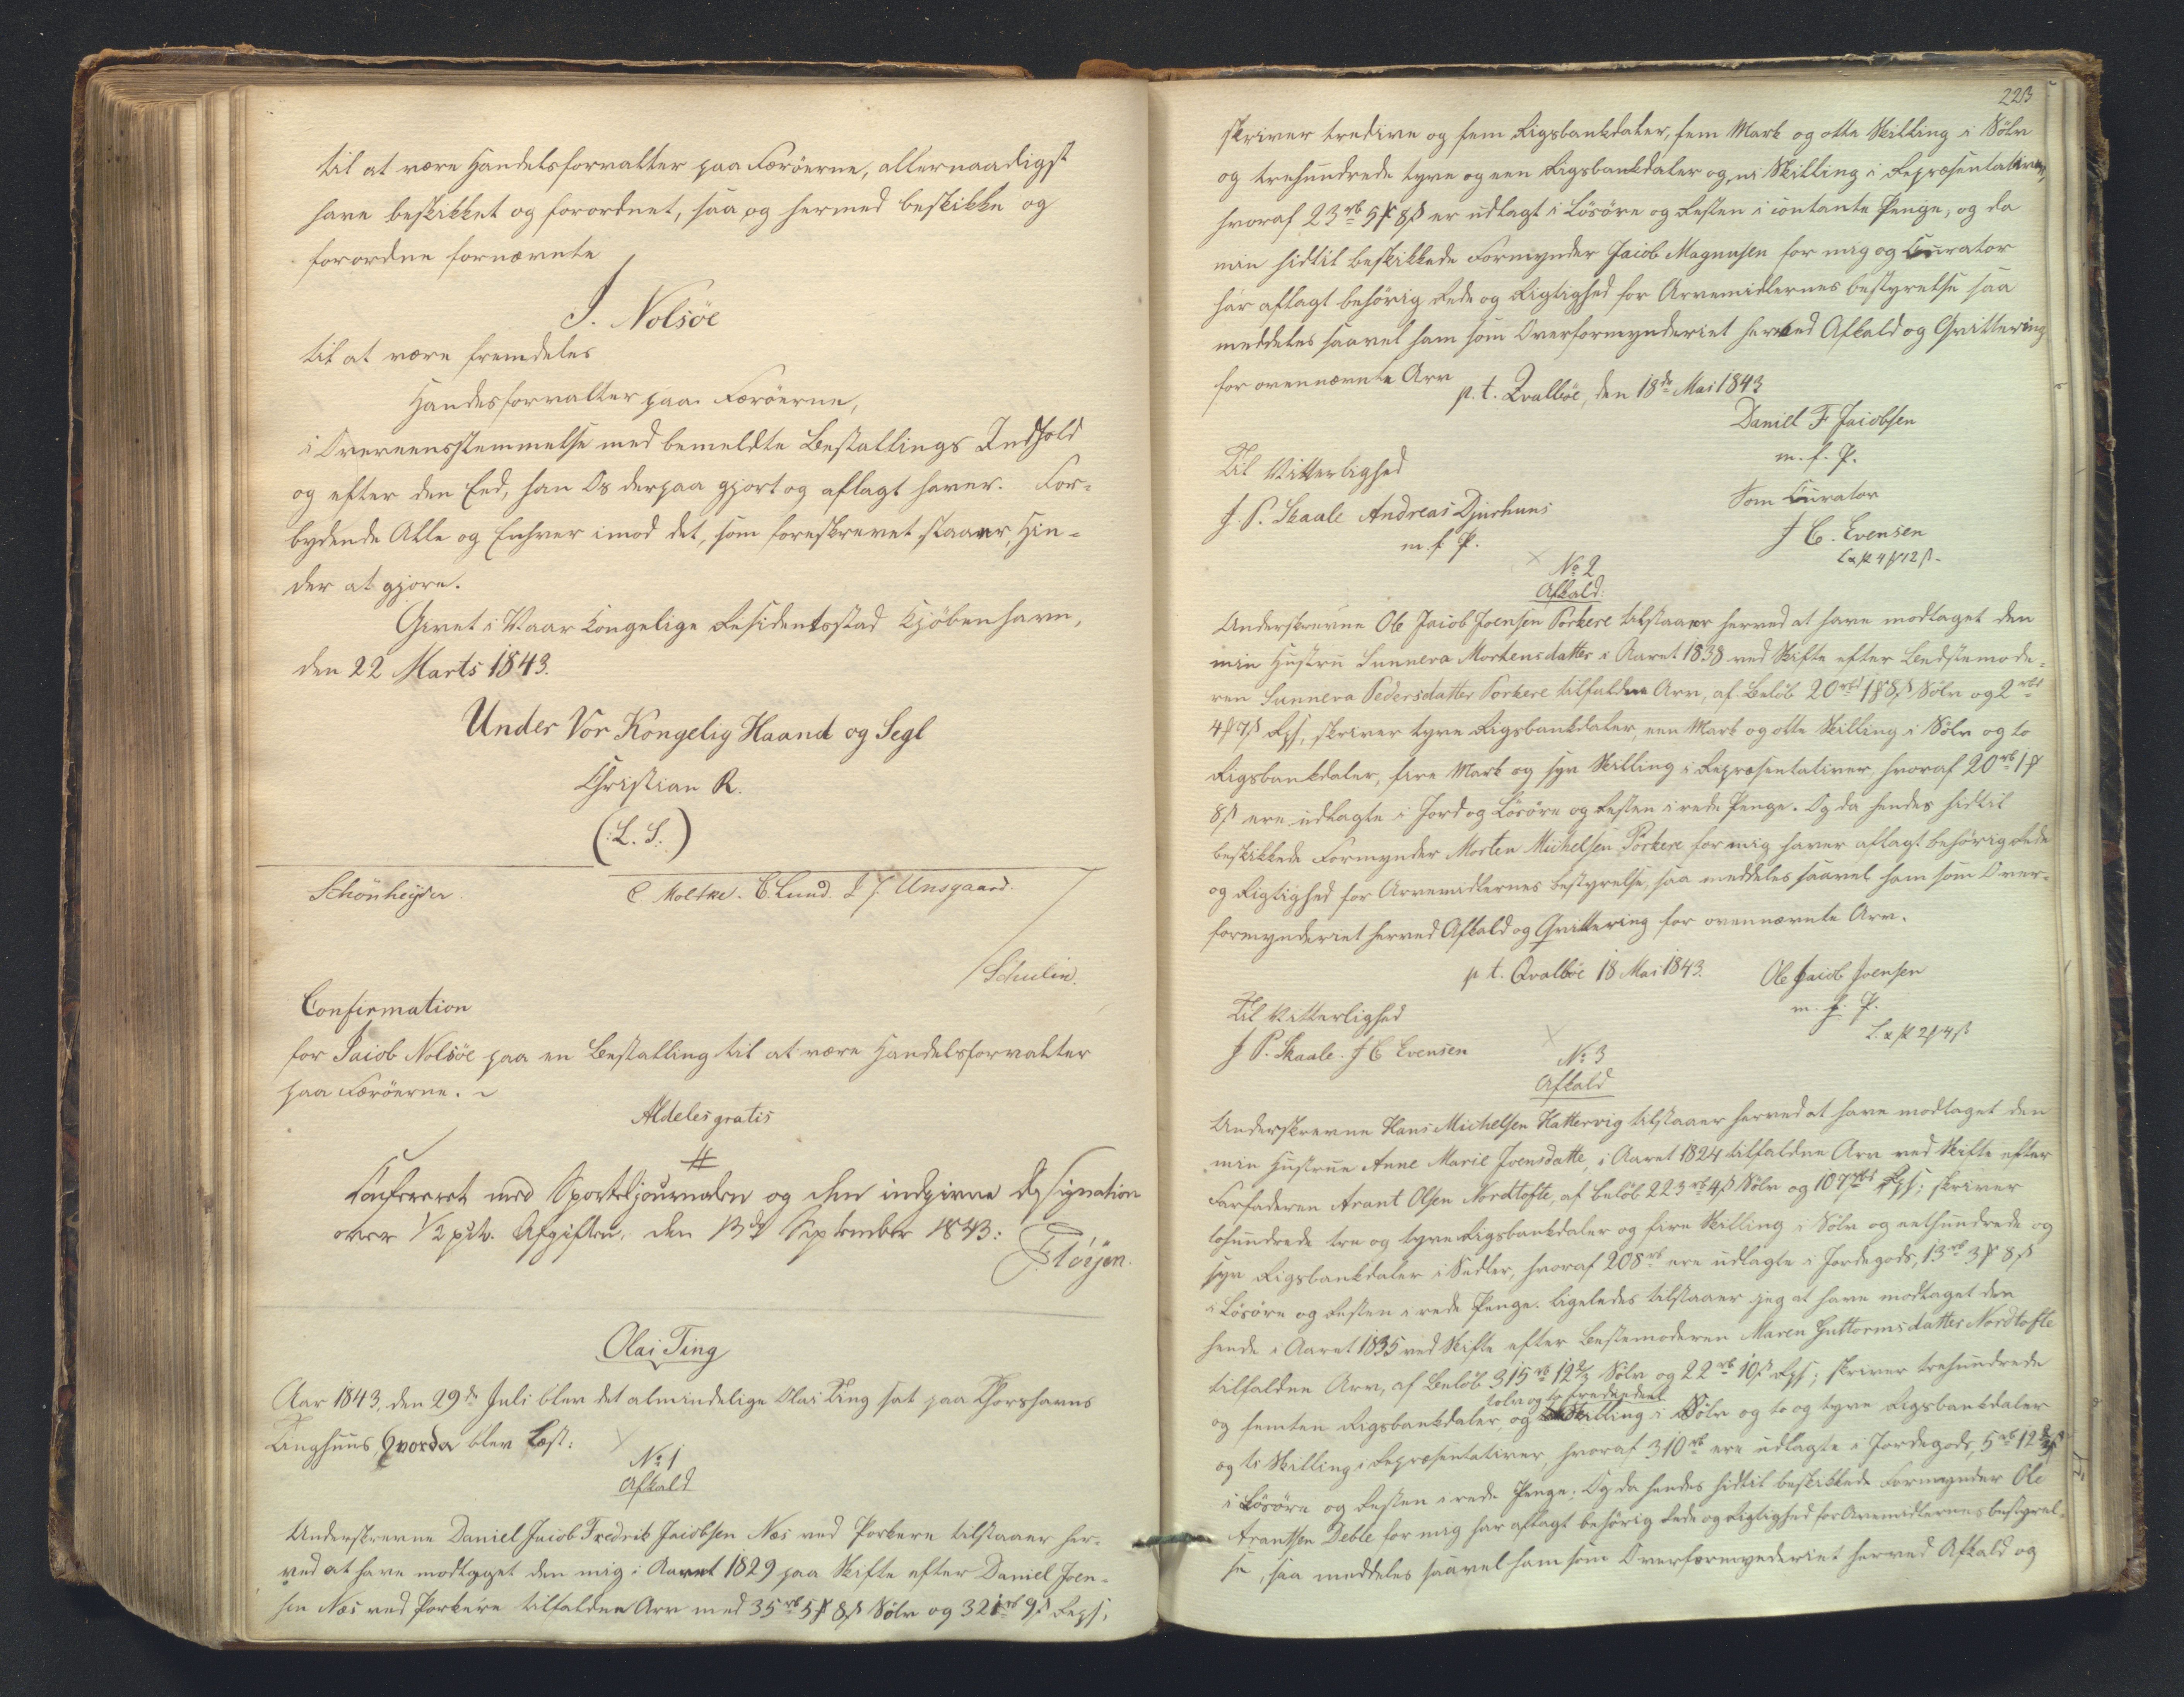 til at være Handelsforvalter paa Færöerne, allernaadigst
have beskikket og forordnet, saa og hermed beskikke og
forordne fornævnte
J. Nolsöe
til at være fremdeles
Handesforvalter paa Færöerne,
i Overeensstemmelse med bemeldte Bestallings Indhold
og efter den Eed, han Os derpaa gjort og aflagt haver. For-
bydende Alle og Enhver imod det, som foreskrevet staaer, Hin-
der at gjøre.
Givet i Vaar Kongelige Residentsstad Kjöbenhavn,
den 22 Marts 1843.
Under Vor Kongelig Haand og Segl
Christian R.
(L. S.)
Schönheyder. C Moltke. C. Lund. I J. Unsgaard.
/Schulin.
Confirmation
for Jacob Nolsöe paa en Bestalling til at være Handelsforvalter
paa Færöerne.
Aldeles gratis
Confereret med Sporteljournalen og den indgivne Designation
over 1/2 pCt. Afgiften, den 13de September 1843:
Tlöyen.
Olai Ting
Aar 1843, den 29de Juli blev det almindelige Olai Ting sat paa Thorshavns
Tinghuus, hvorda blev læst:
No 1
Afkald
Underskrevne Daniel Jacob Fredrik Jacobsen Næs ved Porkere tilstaaer her-
ved at have modtaget den mig i Aaret 1829 paa Skifte efter Daniel Joen-
sen Næs ved Porkere tilfaldne Arv med 35 rb 5 ꟗ 8 ß Sölv og 321 rb 9 ß Reps,
223
skriver tredive og fem Rigsbankdaler, fem Mark og otte Skilling i Sölv
og trehundrede tyve og een Rigsbankdaler og ni Skilling i Repræsentativer,
hvoraf 23 rb 5 ꟗ 8 ß er udlagt i Lösöre og Resten i contante Penge, og da
min hidtil beskikkede Formynder Jacob Magnusen for mig og Curator
har aflagt behörig Rede og Rigtighed for Arvemidlernes bestyrelse saa
meddeles saavel ham som Overformynderiet herved Afkald og Qvittering
for ovennævnte Arv
p. t. Qvalböe, den 18de Mai 1843
Daniel F Jacobsen
m. f. P.
Til Vitterlighed
Som Curator
J. P. Skaale Andreas Djurhuus
m f P.
J C. Evensen
No 2
Afkald.
Underskrevne Ole Jacob Joensen Porkere tilstaaer herved at have modtaget den
min Hustru Sunneva Mortensdatter i Aaret 1838 ved Skifte efter Bedstemode-
ren Sunneva Pedersdatter Porkere tilfaldne Arv, af Beløb 20 rbd 1 ꟗ 8 ß Sölv og 2 rbd
4 ꟗ 7 ß Rps, skriver tyve Rigsbankdaler, een Mark og otte Skilling i Sölv og to
Rigsbankdaler, fire Mark og syv Skilling i Repræsentativer hvoraf 20 rb 1 ꟗ
8 ß ere udlagte i Jord og Lösöre og Resten i rede Penge. Og da hendes hidtil
beskikkede Formynder Morten Michelsen Porkere for mig haver aflagt behörig Rede
og Rigtighed for Arvemidlernes bestyrelse, saa meddeles saavel ham som Over-
formynderiet herved Afkald og Qvittering for ovennævnte Arv.
p t. Qvalböe 18 Mai 1843. Ole Jacob Joensen
m. f. P.
Til Vitterlighed
J P. Skaale. J C Evensen
No 3
Afkald
Underskrevne Hans Michelsen Hattervig tilstaaer herved at have modtaget den
min Hustrue Anne Marie Joensdatte, i Aaret 1824 tilfaldne Arv ved Skifte efter
Farfaderen Arant Olsen Nordtofte, af Beløb 223 rb 4 ß Sölv og 107 rbd Rps; skriver
tohundrede tre og tyve Rigsbankdaler og fire Skilling i Sölv og eethundrede og
syv Rigsbankdaler i Sedler, hvoraf 208 rb ere udlagte i Jordegods, 13 rb 3 ꟗ 8 ß
i Lösöre og Resten i rede Penge. Ligeledes tilstaaer jeg at have modtaget den
hende i Aaret 1835 ved Skifte efter Bestemoderen Maren Guttormsdatter Nordtofte
tilfaldne Arv, af Beløb 315 rb 12 2/3 Sölv og 22 rb 10 ß Rps; skriver trehundrede
tolv og to trediedeel
og femten Rigsbankdaler, og Skilling i Sölv og to og tyve Rigsbankdaler
og ti Skilling i Repræsentativer, hvoraf 310 rb ere udlagte i Jordegods, 5 rb 12 2/3 ß
i Lösöre og Resten i rede Penge; Og da hendes hidtil beskikkede Formynder Ole
Arantsen Deble for mig har aflagt behörig Rede og Rigtighed for Arvemidlernes bestyrel-
se, saa meddeles saavel ham som Overformynderiet herved Afkald og